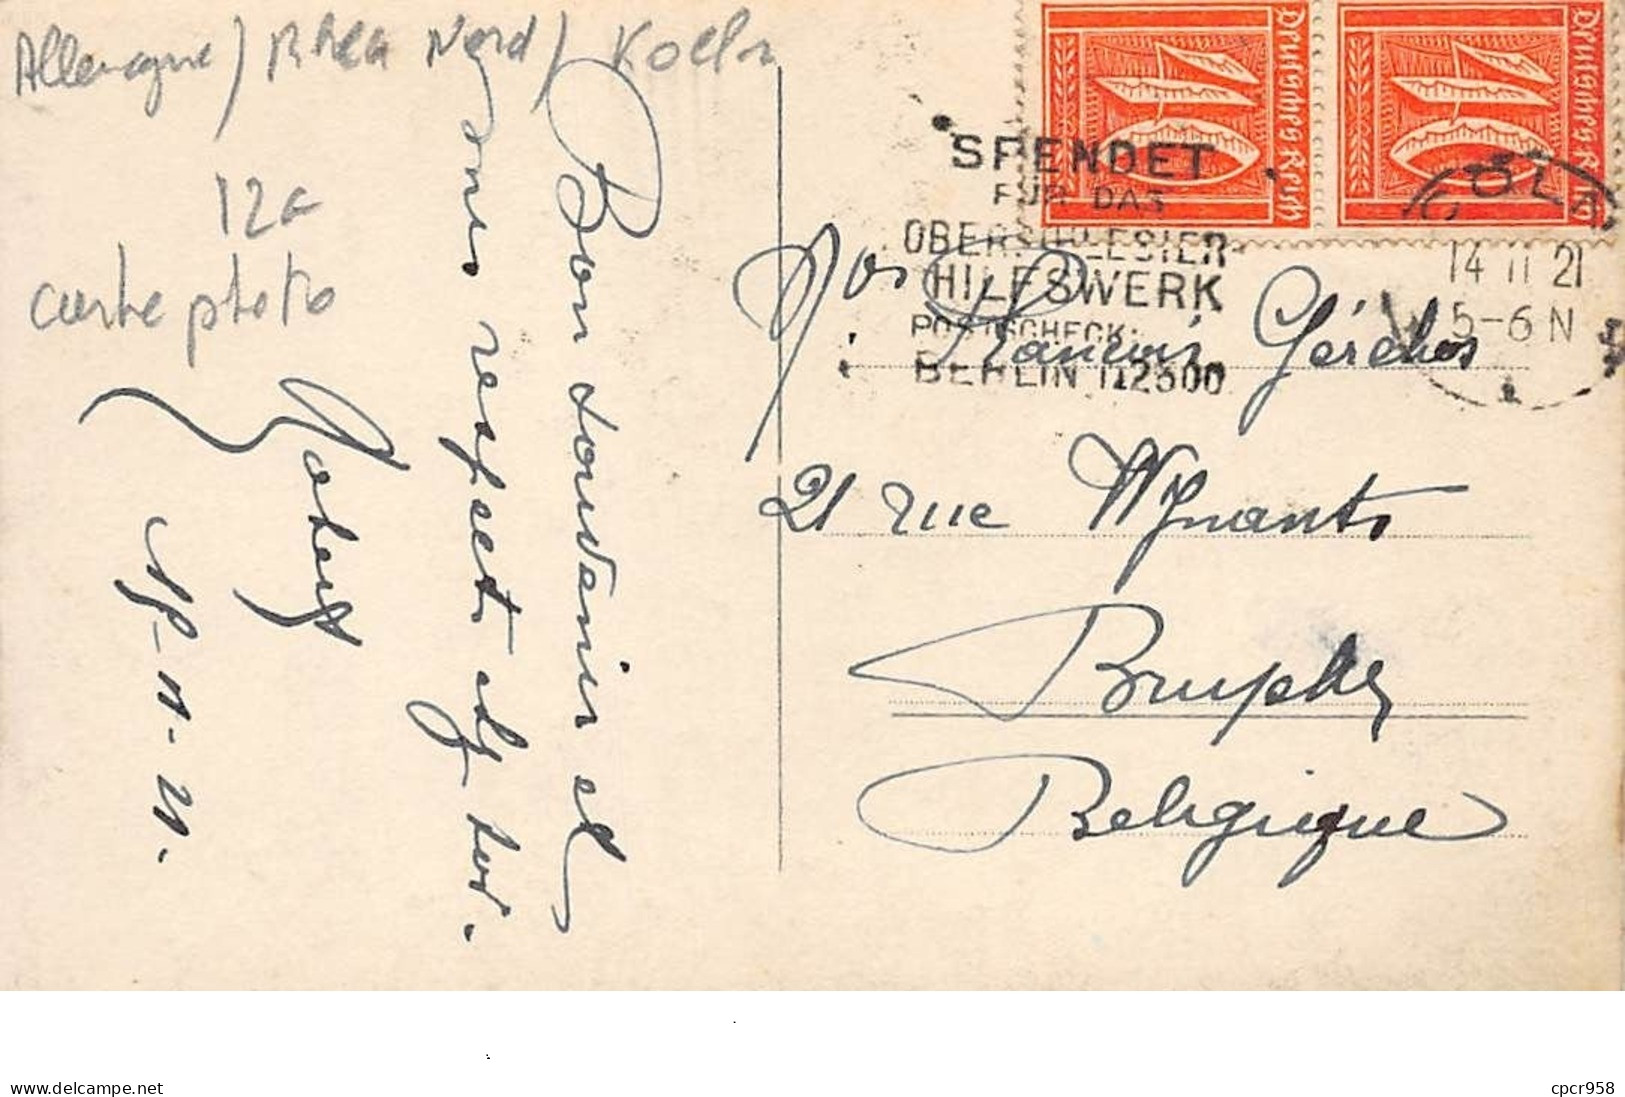 Allemagne / Rhea Nord / Koeln
12€
carte photo
Bon souvenir et
bons respects
Robert
11. 21.
Deutsches Reich
40
Deutsches Reich
40
SPENDET
FÜR DAS
OBERSCHLESIER
HILFSWERK
POSTSCHECK:
BERLIN 112500
CÖLN
14 11 21
5-6 N
François Gérchos
21 rue Wynants
Bruxelles
Belgique
www.delcampe.net
cpcr958